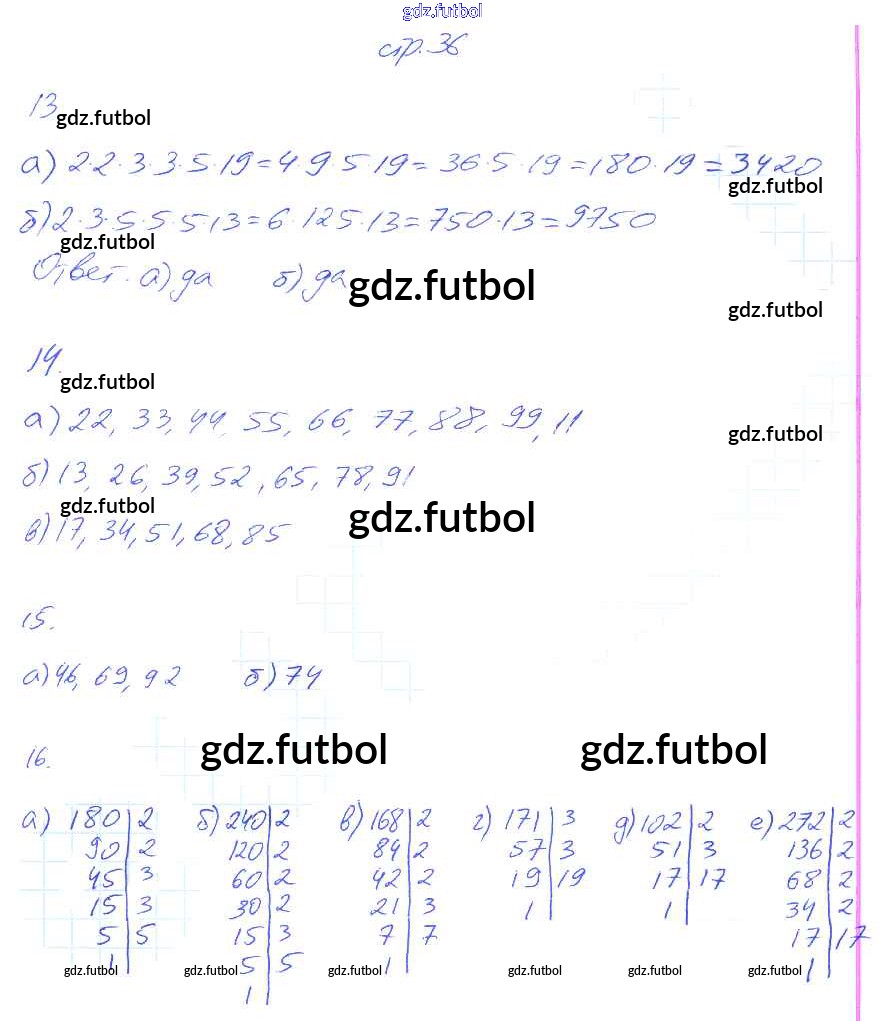 gdz.futbol
стр. 36
13
gdz.futbol
а) 2·2·3·3·5·19=4·9·5·19=36·5·19=180·19=3420
gdz.futbol
б) 2·3·5·5·5·13=6·125·13=750·13=9750
gdz.futbol
Ответ: а) да б) да
gdz.futbol
gdz.futbol
14.
gdz.futbol
а) 22, 33, 44, 55, 66, 77, 88, 99, 11
gdz.futbol
б) 13, 26, 39, 52, 65, 78, 91
gdz.futbol
gdz.futbol
в) 17, 34, 51, 68, 85
15.
а) 46, 69, 92 б) 74
gdz.futbol gdz.futbol
16.
а) 180|2 б) 240|2 в) 168|2 г) 171|3 д) 102|2 е) 272|2
90|2 120|2 84|2 57|3 51|3 136|2
45|3 60|2 42|2 19|19 17|17 68|2
15|3 30|2 21|3 1| 1| 34|2
5|5 15|3 7|7 17|17
1| 5|5 1| 1|
gdz.futbol gdz.futbol gdz.futbol gdz.futbol gdz.futbol gdz.futbol
1|